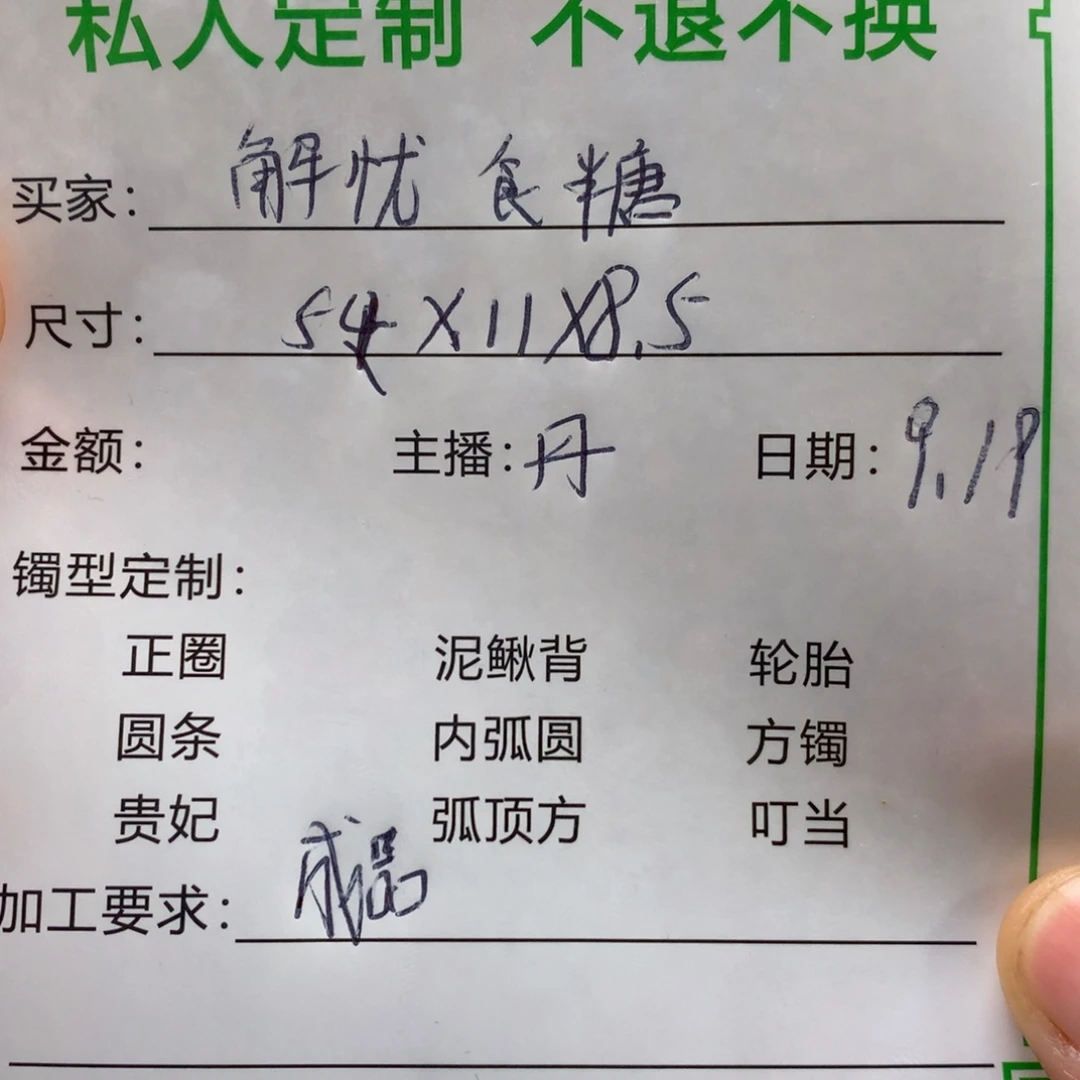 私人定制 不退不换
买家：解忧食糖
尺寸：54X11X8.5
金额： 主播：丹 日期：9.19
镯型定制：
正圈 泥鳅背 轮胎
圆条 内弧圆 方镯
贵妃 弧顶方 叮当
加工要求：成品